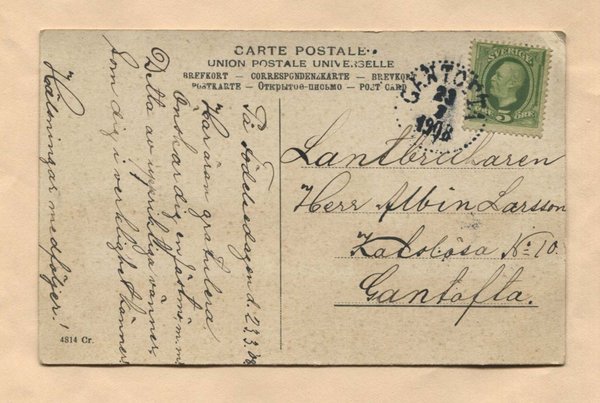 CARTE POSTALE
UNION POSTALE UNIVERSELLE
BREFKORT — CORRESPONDENZKARTE — BREVKORT
POSTKARTE — Открытое-письмо — POST CARD
GANTOFTA
23
3
1908
SVERIGE
5 ÖRE
Lantbrukaren
Herr Albin Larsson
N:o 10.
Gantofta.
På födelsedagen d. 23.3.08
Har äran gratulera.
Önskar dig en m.m.
Detta av uppriktiga vänner
som dig i verklighet känner
Hälsningar medföljer!
4814 Cr.